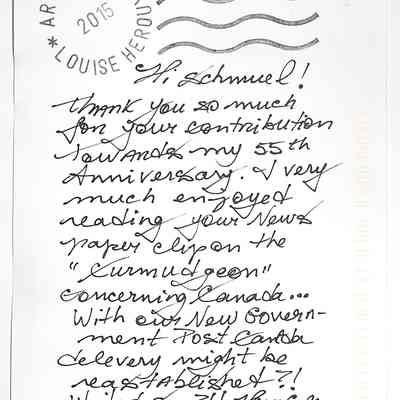 AR
2015
* LOUISE HEROU
Hi Schmuel!
Thank you so much
for your contribution
towards my 55th
Anniversary. I very
much enjoyed
reading your News
paper clip on the
"Curmudgeon"
concerning Canada...
With our New Govern-
ment Post Canada
delevery might be
reastablished?!